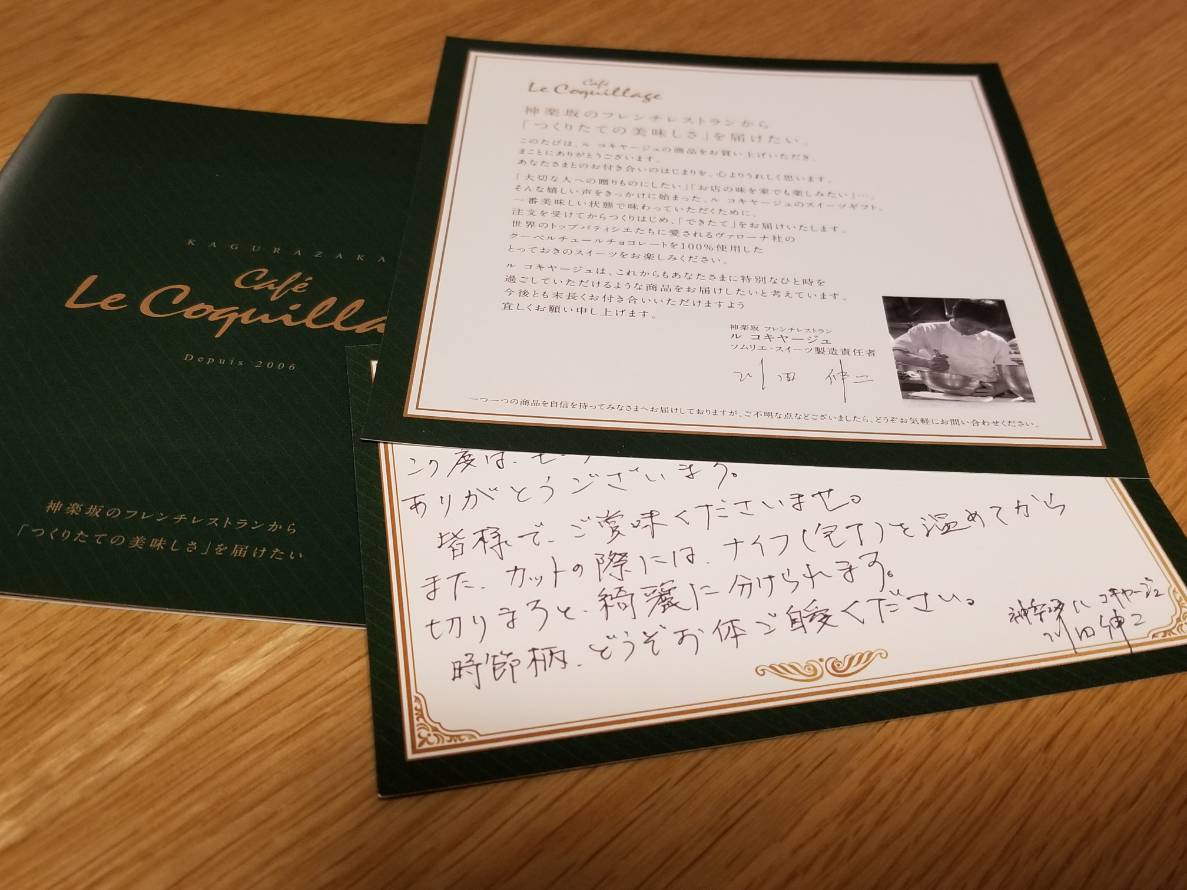 KAGURAZAKA
Café
Le Coquilla
Depuis 2006
神楽坂のフレンチレストランから
「つくりたての美味しさ」を届けたい
Café
Le Coquillage
神楽坂のフレンチレストランから
「つくりたての美味しさ」を届けたい。
このたびは、ル コキヤージュの商品をお買い上げいただき、
まことにありがとうございます。
あなたさまとのお付き合いのはじまりを、心よりうれしく思います。
「大切な人への贈りものにしたい」「お店の味を家でも楽しみたい」…。
そんな嬉しい声をきっかけに始まった、ル コキヤージュのスイーツギフト。
一番美味しい状態で味わっていただくために、
注文を受けてからつくりはじめ、「できたて」をお届けいたします。
世界のトップパティシエたちに愛されるヴァローナ社の
クーベルチュールチョコレートを100%使用した
とっておきのスイーツをお楽しみください。
ル コキヤージュは、これからもあなたさまに特別なひと時を
過ごしていただけるような商品をお届けしたいと考えています。
今後とも末長くお付き合いいただけますよう
宜しくお願い申し上げます。
神楽坂 フレンチレストラン
ル コキヤージュ
ソムリエ・スイーツ製造責任者
川田 伸二
一つ一つの商品を自信を持ってみなさまへお届けしておりますが、ご不明な点などございましたら、どうぞお気軽にお問い合わせください。
この度は、
ありがとうございます。
皆様で、ご賞味くださいませ。
また、カットの際には、ナイフ(包丁)を温めてから
切りますと、綺麗に分けられます。
時節柄、どうぞお体ご自愛ください。
神楽坂 ル コキヤージュ
川田 伸二